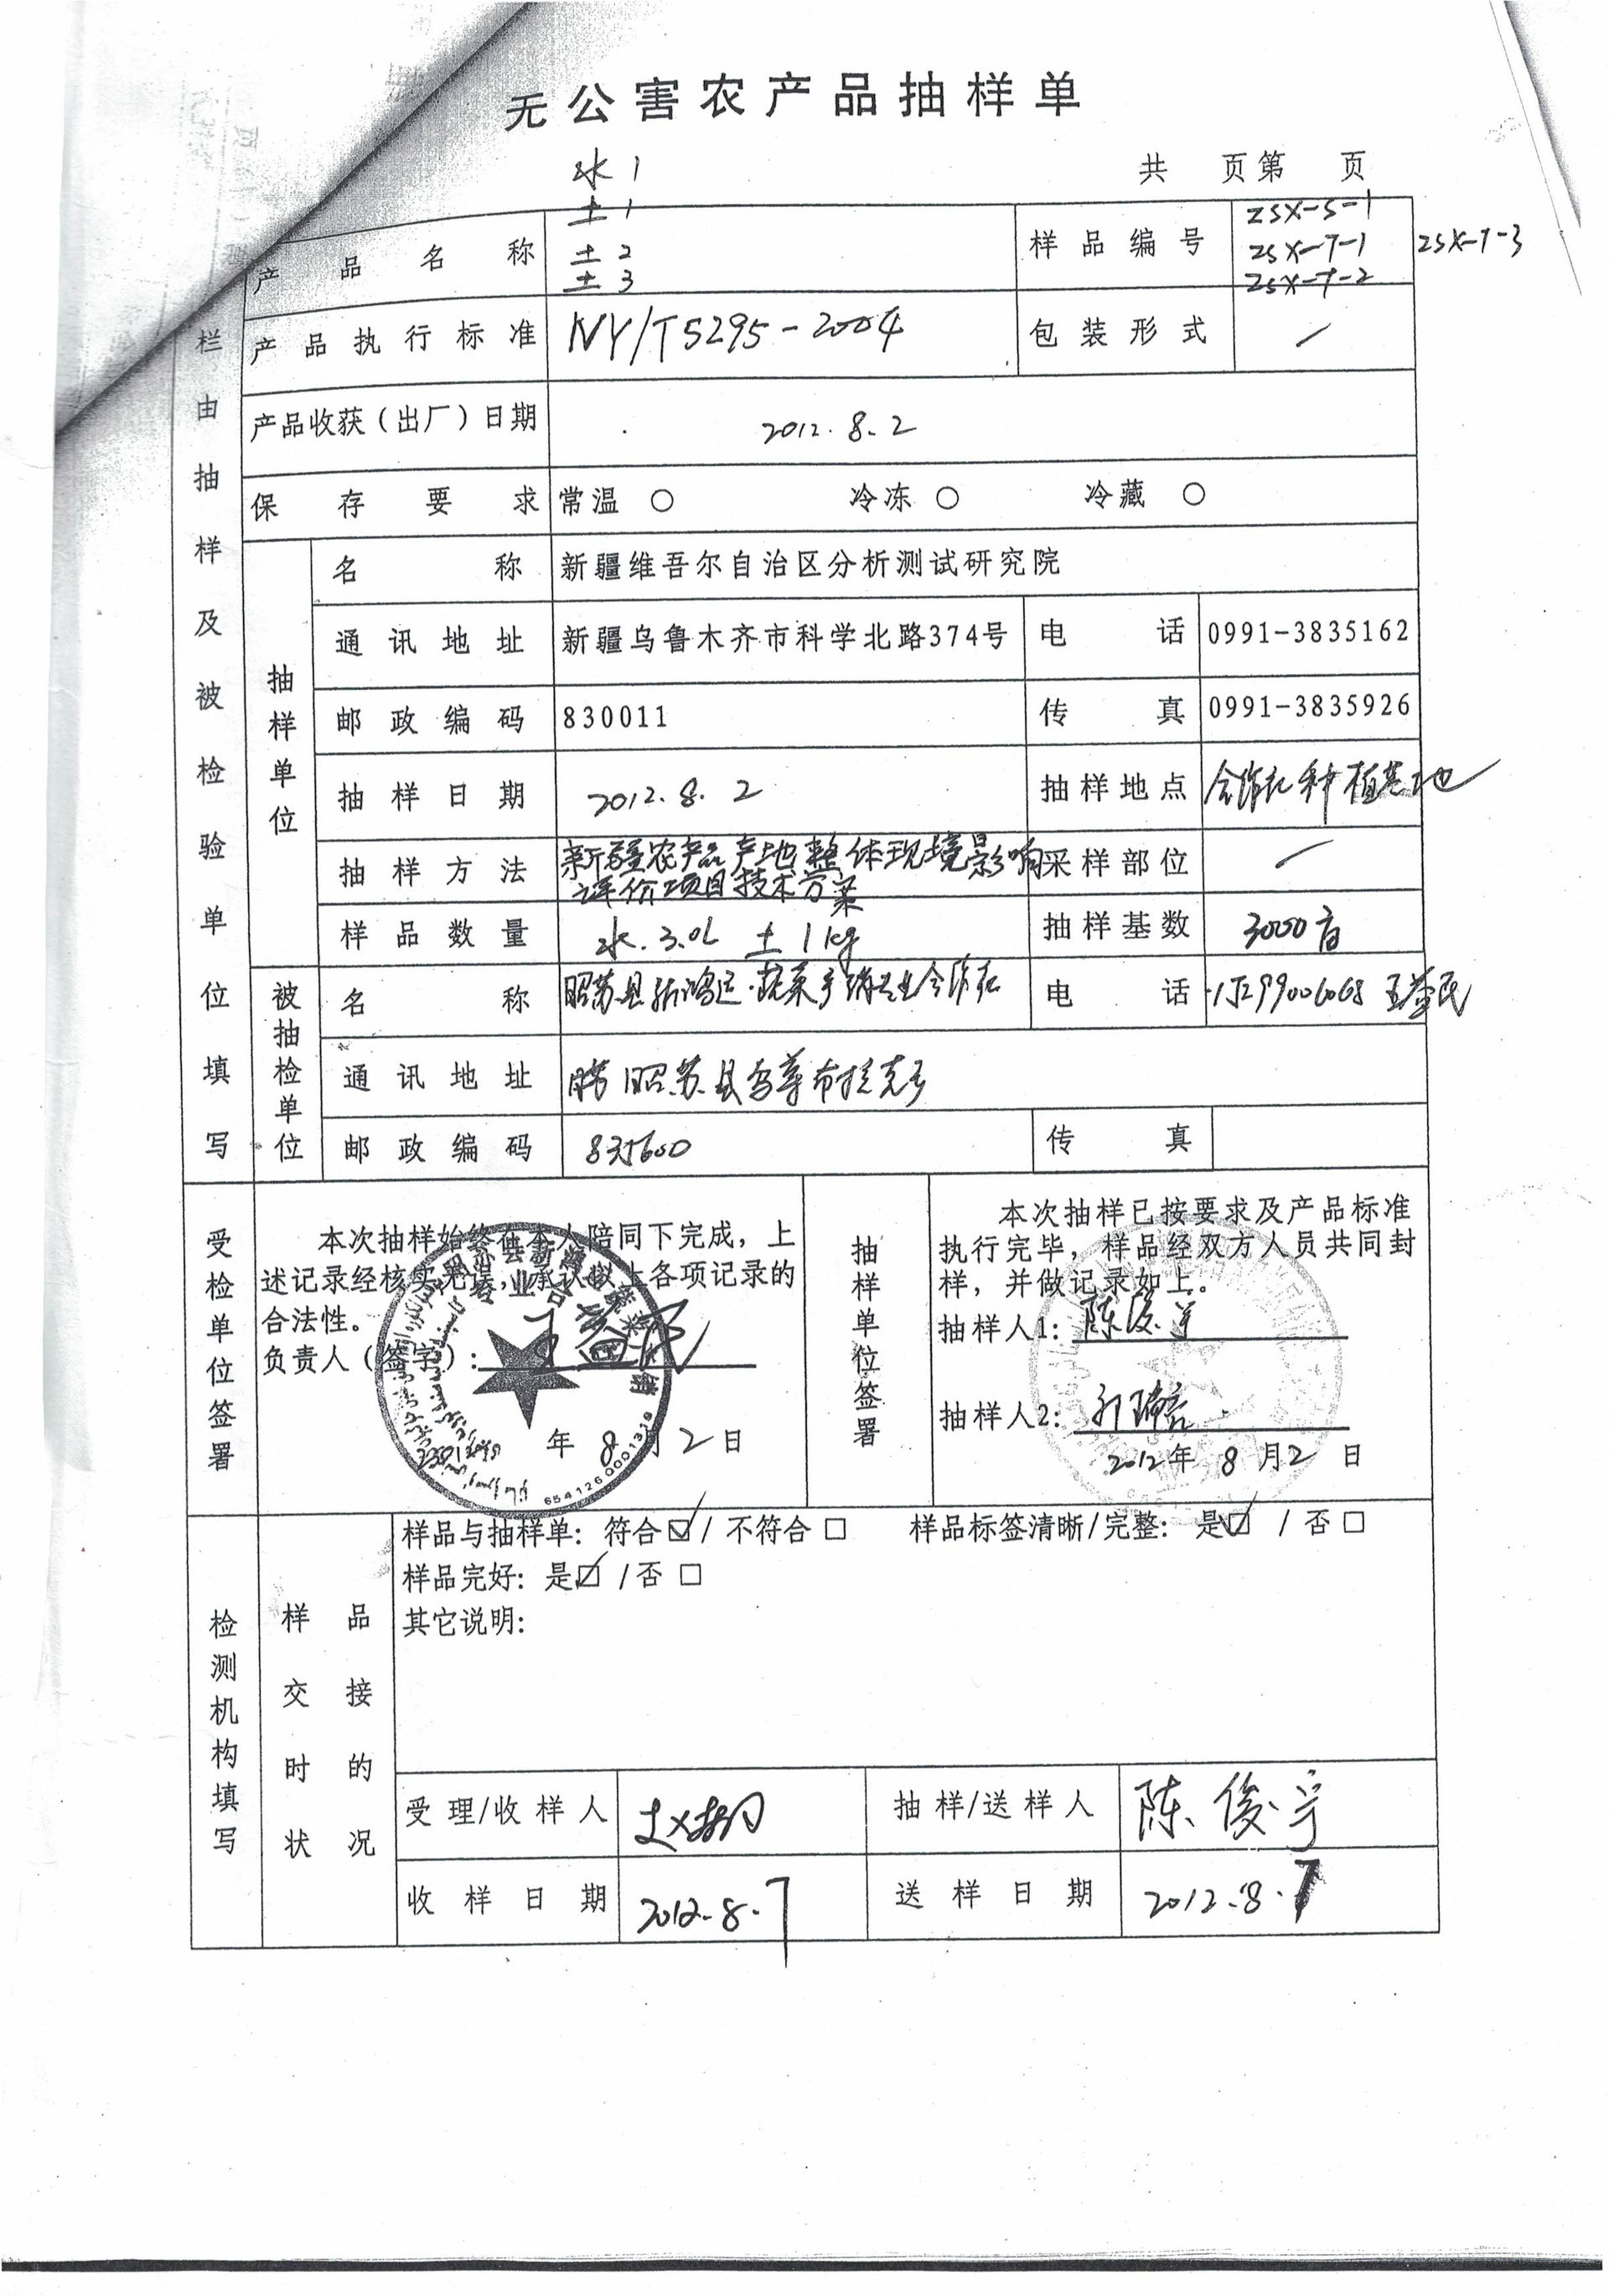 无公害农产品抽样单
共 页第 页
水1
土1
产品名称 土2
土3
样品编号 ZSX-S-1
ZSX-T-1 ZSX-T-3
ZSX-T-2
产品执行标准 NY/T5295-2004 包装形式 /
产品收获(出厂)日期 2012.8.2
保存要求 常温 ○ 冷冻 ○ 冷藏 ○
栏由抽样及被检验单位填写
抽样单位
名称 新疆维吾尔自治区分析测试研究院
通讯地址 新疆乌鲁木齐市科学北路374号 电话 0991-3835162
邮政编码 830011 传真 0991-3835926
抽样日期 2012.8.2 抽样地点 合作社种植基地
抽样方法 新疆农产品产地整体现境影响
评价项目技术方案
采样部位 /
样品数量 水.3.0L 土1kg 抽样基数 3000亩
被抽检单位
名称 昭苏县新鸿运蔬菜产销专业合作社 电话
通讯地址 昭苏县
邮政编码 835600 传真
受检单位签署
本次抽样始终在本人陪同下完成，上
述记录经核实无误，承认以上各项记录的
合法性。
负责人（签字）：王益民
年8月2日
6541260001319
抽样单位签署
本次抽样已按要求及产品标准
执行完毕，样品经双方人员共同封
样，并做记录如上。
抽样人1：陈俊宇
抽样人2：
2012年8月2日
检测机构填写
样品交接时的状况
样品与抽样单：符合☑/不符合□ 样品标签清晰/完整：是☑/否□
样品完好：是☑/否□
其它说明：
受理/收样人 抽样/送样人 陈俊宇
收样日期 2012.8.7 送样日期 2012.8.7